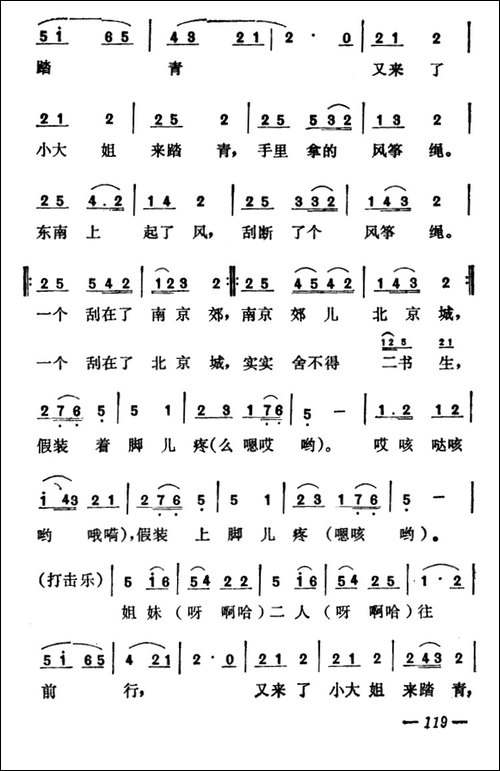 5i 65 | 43 21 | 2 · 0 | 21 2 |
踏 青 又来了
21 2 | 25 2 | 25 532 | 13 2 |
小大 姐 来踏 青，手里 拿的 风筝 绳。
25 4.2 | 14 2 | 25 332 | 143 2 |
东南 上 起了 风，刮断 了个 风筝 绳。
25 542 | 123 2 :‖: 25 4542 | 143 2 :‖
一个 刮在了 南京 郊，南京 郊儿 北京 城，
125 21
一个 刮在了 北京 城，实实 舍不得 二书 生，
276 5 | 5 1 | 23 176 | 5 - | 1.2 12 |
假装 着 脚 儿 疼(么 嗯哎 哟)。 哎咳 哒咳
i43 21 | 276 5 | 5 1 | 23 176 | 5 - |
哟 哦嗬)，假装 上 脚 儿 疼 (嗯咳 哟)。
(打击乐) | 5 i6 | 54 22 | 5 i6 | 54 25 | 1·2 |
姐 妹 (呀 啊哈) 二 人 (呀 啊哈) 往
5i 65 | 4 21 | 2·0 | 21 2 | 21 2 | 243 2 |
前 行， 又来 了 小大 姐 来踏 青，
— 119 —